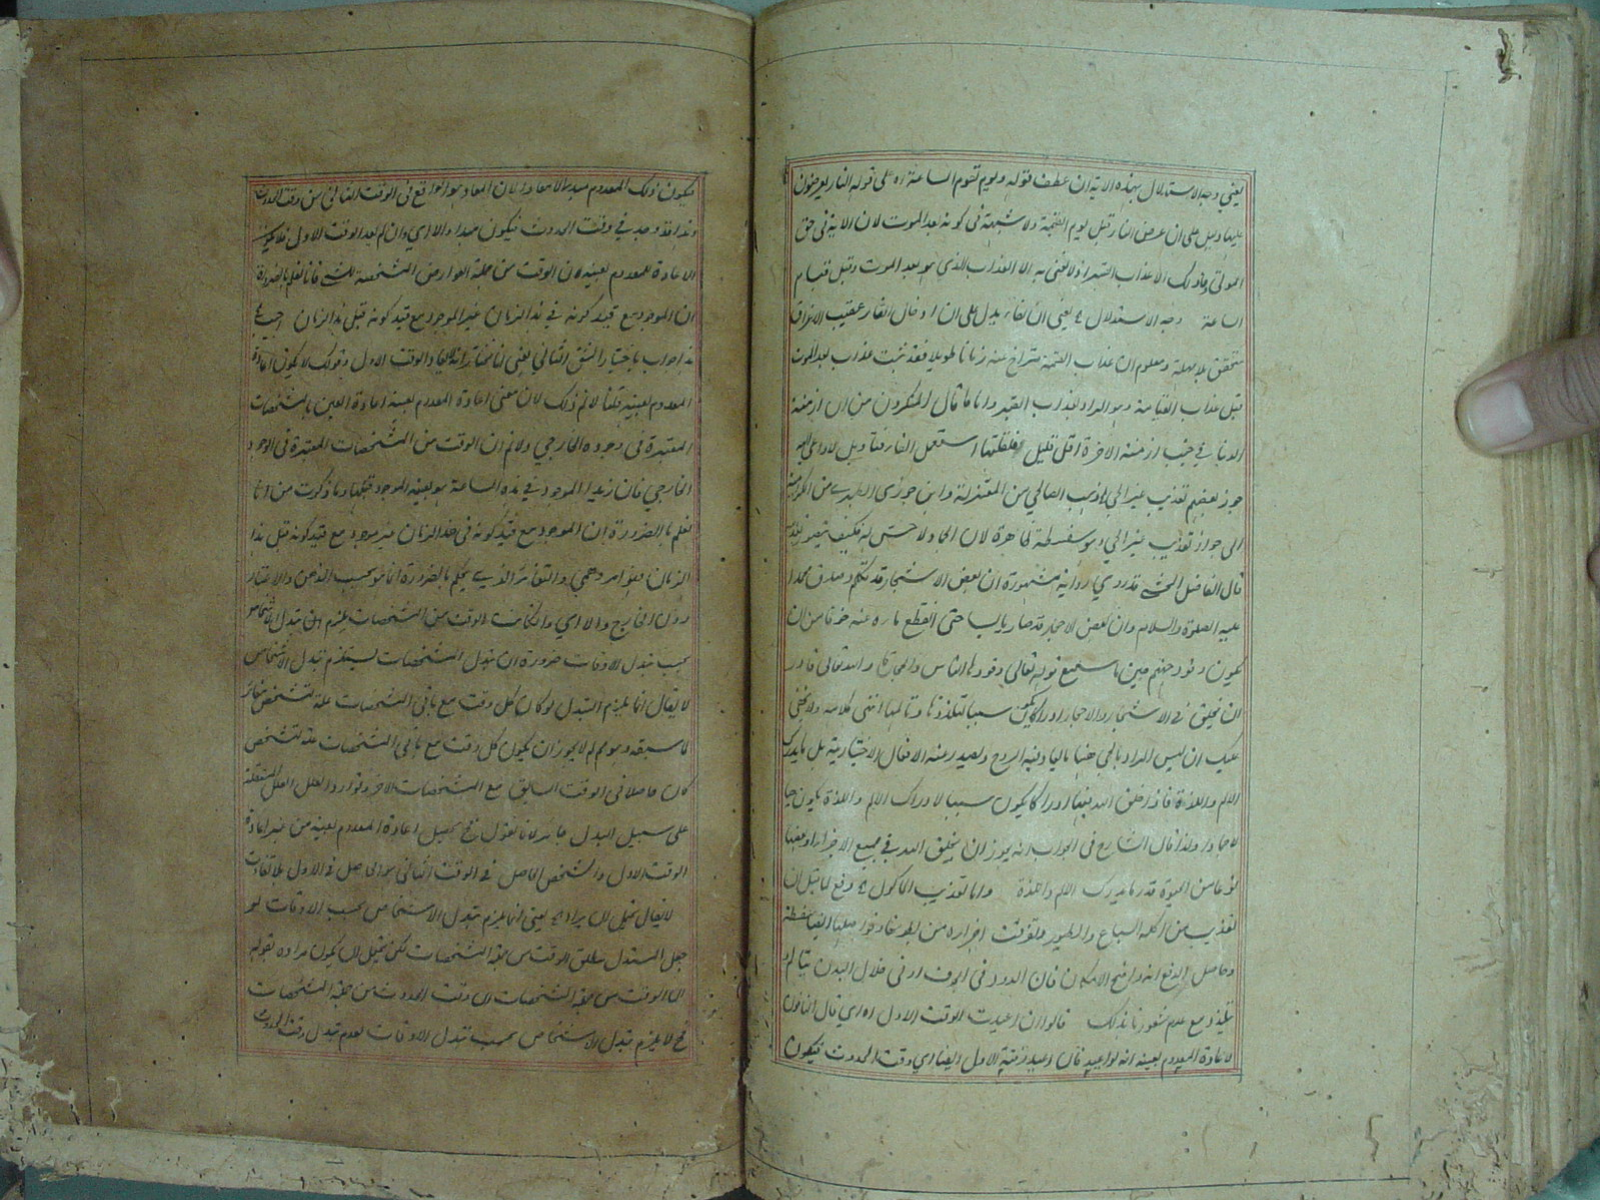 يعني وجه الاستدلال بهذه الآية ان عطف قوله ويوم تقوم الساعة اه على قوله النار يعرضون
عليها دليل على ان عرض النار قبل يوم القيمة ولا شبهة في كونه بعد الموت لان الآية في حق
الموتى وما ذلك الا عذاب القبر اذ لا نعني به الا العذاب الذي هو بعد الموت وقبل قيام
الساعة وجه الاستدلال يعني ان الفاء يدل على ان ادخال النار عقيب الاغراق
متحقق بلا مهلة ومعلوم ان عذاب القيمة متراخ عنه زمانا طويلا فقد ثبت عذاب بعد الموت
قبل عذاب القيامة وهو المراد بعذاب القبر واما ما قال المنكرون من ان ازمنة
الدنيا في جنب ازمنة الآخرة اقل قليل استعمل الفاء فتأويل بلا داعي اليه
جوز بعضهم تعذيب غير الحي ذهب الصالحي من المعتزلة وابن جرير الطبري من الكرامية
الى جواز تعذيب غير الحي وهو سفسطة ظاهرة لان الجماد لا حس له فكيف يتصور تعذيبه
قال الفاضل المحشي قد روي رواية مشهورة ان بعض الاشجار قد تكلم وصدق محمدا
عليه الصلوة والسلام وان بعض الاحجار قد صار يابسا حتى انقطع ماءه عنه خوفا من ان
يكون وقود جهنم حين ما سمع قوله تعالى وقودها الناس والحجارة والله تعالى قادر
ان يخلق في الاشجار والاحجار ادراكا يكون سببا لتلذذها وتألمها انتهى كلامه ولا يخفى
عليك ان ليس المراد بالحي ههنا ما اعيد فيه الروح ويصدر عنه الافعال الاختيارية بل ما يدرك
الالم واللذة فاذا خلق الله فيها ادراكا يكون سببا لادراك الالم واللذة يكون حيا
لا جمادا ولذا قال الشارح في الجواب انه يجوز ان يخلق الله في جميع الاجزاء او بعضها
نوعا من الحيوة قدر ما يدرك الالم واللذة واما تعذيب المأكول دفع لما قيل ان
تعذيب من اكله السباع والطيور وتفرقت اجزاءه من بطونها وحواصلها
وحاصل الدفع انه واضح الامكان فان الدود في الجوف او في خلال البدن يتألم
يتلذذ مع عدم شعورنا بذلك قالوا ان اعيدت الوقت الاول اه اي قال النافون
لاعادة المعدوم بعينه انه لو اعيد فان اعيد وقته الاول ايضا اي وقت الحدوث فيكون
فيكون ذلك المعدوم مبدءا لا معادا لان المعاد هو الواقع في الوقت الثاني من وقت الحدوث
وهذا قد وجد في وقت الحدوث فيكون مبداء والا اي وان لم يعد الوقت الاول فلا يكون
الاعادة للمعدوم بعينه لان الوقت من جملة العوارض المشخصة للشي فانا نعلم بالضرورة
ان الموجود مع قيد كونه في هذا الزمان غير الموجود مع قيد كونه قبل هذا الزمان
هذا جواب باختيار الشق الثاني يعني انا نختار انه لا يعاد الوقت الاول وقولك لا يكون اعادة
المعدوم بعينه قلنا لا نم ذلك لان معنى اعادة المعدوم بعينه اعادة العين بالمشخصات
المعتبرة في وجوده الخارجي ولا نم ان الوقت من المشخصات المعتبرة في الوجود
الخارجي فان زيدا الموجود في هذه الساعة هو بعينه الموجود قبلها وما ذكرت من انا
نعلم بالضرورة ان الموجود مع قيد كونه في هذا الزمان غير موجود مع قيد كونه قبل هذا
الزمان فهو امر وهمي والتغائر الذي يحكم بالضرورة انما هو بحسب الذهن والاعتبار
دون الخارج والا اي وان كانت الوقت من المشخصات يلزم ان تبدل الاشخاص
بحسب تبدل الاوقات ضرورة ان تبدل المشخصات يستلزم تبدل الاشخاص
لا يقال انما يلزم التبدل لو كان كل وقت مع باقي المشخصات علة لتشخص مغائر
لما سبقه وهو مم لم لا يجوز ان يكون كل وقت مع باقي المشخصات علة لتشخص
كان حاصلا في الوقت السابق مع المشخصات الاخر وتوارد العلل المستقلة
على سبيل البدل جائز لانا نقول فح يحصل اعادة المعدوم بعينه من غير اعادة
الوقت الاول والتشخص الحاصل في الوقت الثاني هو الحاصل في الاول بلا تفاوت
لا يقال يحتمل ان يراد يعني انما يلزم تبدل الاشخاص بحسب الاوقات لو
جعل المستدل مطلق الوقت من جملة المشخصات لكن يحتمل ان يكون مراده بقوله
ان الوقت من جملة المشخصات ان وقت الحدوث من جملة المشخصات
فح لا يلزم تبدل الاشخاص بحسب تبدل الاوقات لعدم تبدل وقت الحدوث